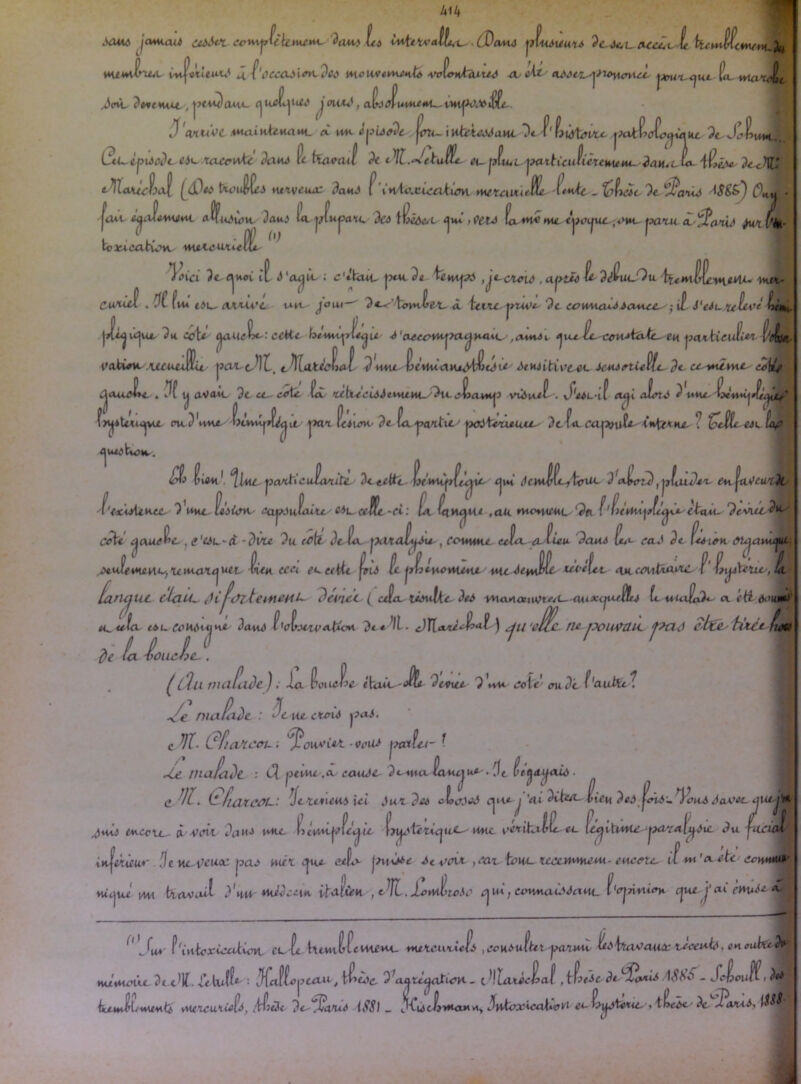 414
sans jamais cesser complètement dans les intervalles. Dans plusieurs de ses accès le tremblement des
membres inférieurs à l'occasion des mouvements volontaires a été assez prononcé pour que la marche
soit devenue, pendant quelques jours, absolument impossible.
J'arrive maintenant à un épisode fort intéressant de l'histoire pathologique de Schum...
Cet épisode est raconté dans le travail de M. Letulle et plus particulièrement dans la thèse de M.
Maréchal (Des troubles nerveux dans l'intoxication mercurielle lente - Thèse de Paris 1885) On y
fait également allusion dans la plupart des thèses qui, vers la même époque, ont paru à Paris sur l'in-
toxication mercurielle (1)
Voici de quoi il s'agit : c'était peu de temps, je crois, après le début du tremblement mer-
curiel. Il lui est arrivé un jour de tomber à terre privé de connaissance ; il s'est relevé hémi-
plégique du côté gauche : cette hémiplégie s'accompagnait, ainsi que le constate en particulier l'obser-
vation recueillie par M. Maréchal d'une hémianesthésie sensitive et sensorielle de ce même côté
gauche. Il y avait de ce côté là rétrécissement du champ visuel. S'est-il agi alors d'une hémiplégie
hystérique ou d'une hémiplégie par lésion de la partie postérieure de la capsule interne ? Telle est la
question.
Eh bien ! Une particularité de cette hémiplégie qui semble, tout d'abord, plaider en faveur de
l'existence d'une lésion capsulaire est celle-ci : la langue, au moment de l'hémiplégie était déviée du
côté gauche, c'est-à-dire du côté de la paralysie, comme cela a lieu dans les cas de lésion organique,
seulement, remarquez bien ceci et cette fois le phénomène me semble révéler au contraire l'hystérie, la
langue était si fortement déviée (cela résulte des manœuvres auxquelles le malade a été soumis
et cela est consigné dans l'observation de M. Maréchal) qu'elle ne pouvait pas être tirée hors
de la bouche.
(Au malade) : La bouche était-elle déviée d'un côté ou de l'autre ?
Le malade : Je ne crois pas.
M. Charcot : Pouviez-vous parler ?
Le malade : À peine, à cause de ma langue. Je bégayais.
M. Charcot : Je reviens ici sur des choses que j'ai dites bien des fois. Vous savez que je
suis encore à voir dans une hémiplégie hystérique une véritable et légitime paralysie du facial
inférieur. Je ne veux pas nier que cela puisse se voir, car tout récemment encore il m'a été commu-
niqué un travail d'un médecin italien, M. Lombroso qui, connaissant l'opinion que j'ai émise à
(1) Sur l'intoxication et le tremblement mercuriels, consulter parmi les travaux récents, en outre du
mémoire de M. Letulle : Hallopeau, thèse d'agrégation - Maréchal, thèse de Paris 1885 - Schoull, des
tremblements mercuriels, thèse de Paris 1881 - Kischmann, Intoxication et hystérie, thèse de Paris, 1888